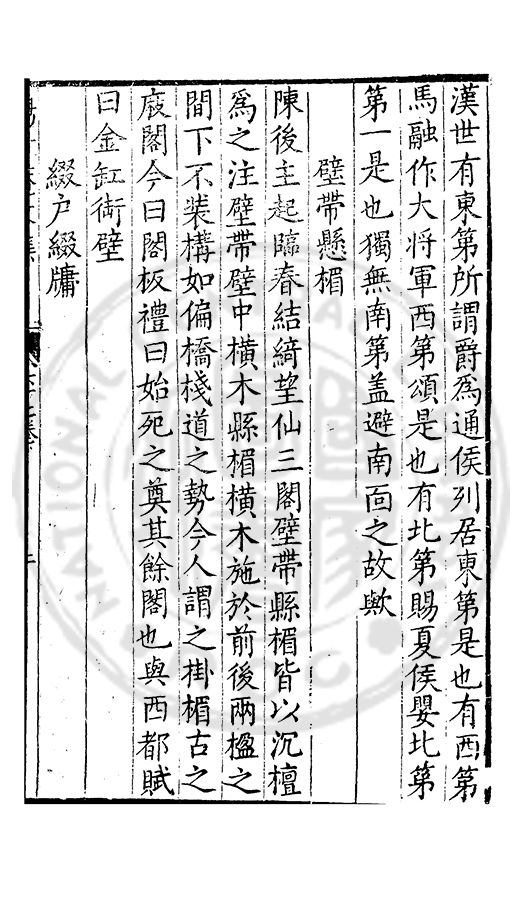 漢世有東第所謂爵爲通侯列居東第是也有西第
馬融作大将軍西第頌是也有北第賜夏侯嬰北第
第一是也獨無南第盖避南面之故歟
壁帶懸楣
陳後主起臨春結綺望仙三閣壁帶縣楣皆以沉檀
爲之注壁帶壁中横木縣楣横木施於前後兩楹之
間下不装構如偏橋棧道之勢今人謂之掛楣古之
庪閣今曰閣板禮曰始死之奠其餘閣也與西都賦
曰金釭銜壁
綴户綴牗